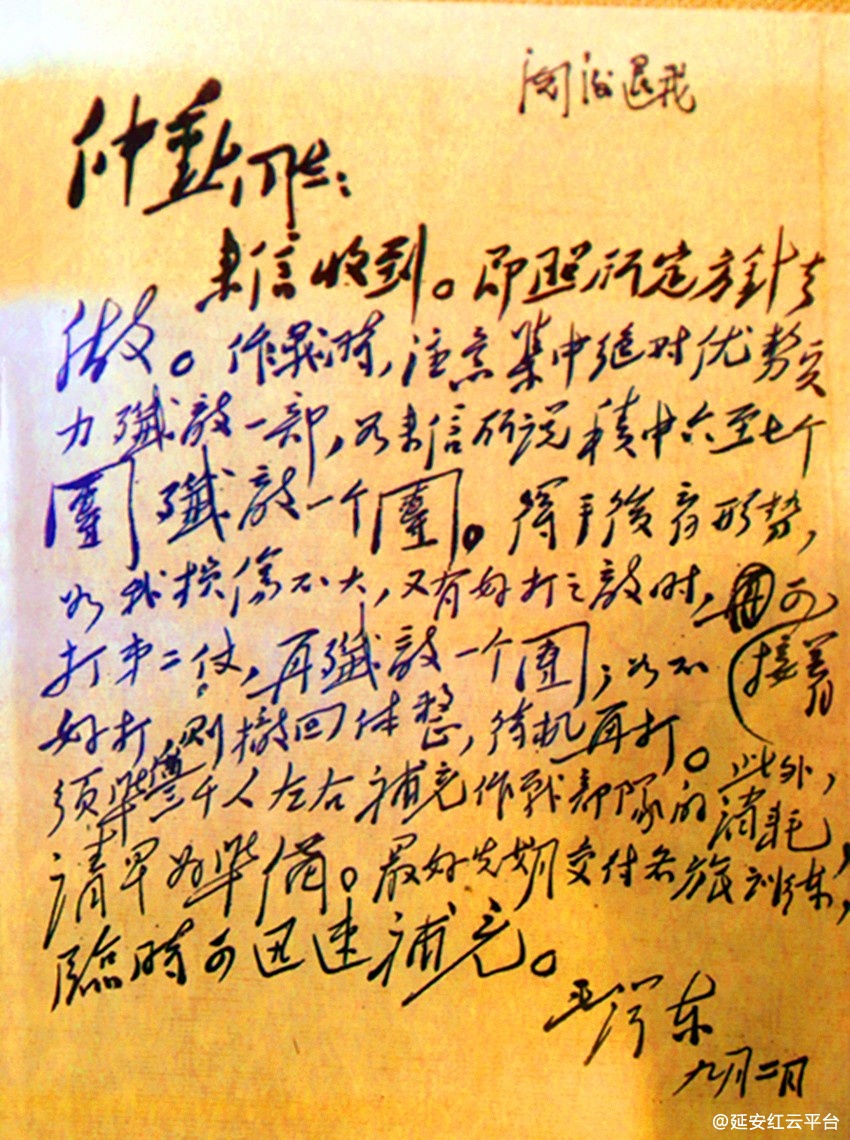 阅后退我
仲勳同志：
来信收到。即照所定方針去
做。作战時，注意集中绝对优势兵
力殲敌一部，如来信所说集中六至七个
團殲敌一个團。得手後看形势，
如我损伤不大，又有好打之敌时，可
接着
打第二仗，再殲敌一个團；如不
好打，则撤回休整，待机再打。此外，
須準三千人左右補充作戰部隊的消耗，
請早为準備。最好先期交付各旅训练，
臨時可迅速補充。
毛泽东
九月二日
@延安红云平台